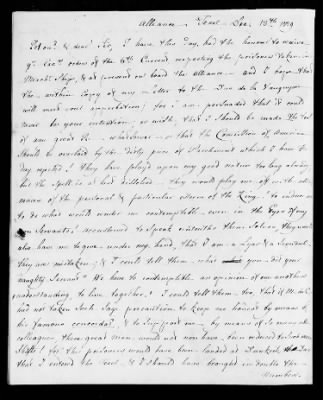 Alliance, Texel Dec. 13th 1779
Hon'd & dear Sir, I have this Day, had the honor to receive
Orders of the 6th Current respecting the prisoners taken in
Merch't Ships, & at present on board the Alliance — and I hope that
the within Copy of my letter to the Duc de la Vauguyon
will meet your approbation; for I am persuaded that it could
never be your intention, or wish, that I should be made the tool
of any great R — whatsoever — or that the Commission of America
should be overlaid by the dirty piece of Parchment which I have this
day rejected! They have played upon my good nature too long already
but the Spell is at last dissolved — they would play me off with assu
rance of the personal & particular esteem of the King to induce me
to do what would render me contemptible even in the Eyes of my
own Servants! Accustomed to Speak untruths themselves, they would
also have me to give under my hand, that I am a Lyar & a Scoundrel.
They are mistaken, & I could tell them what you did your
naughty Servant. "We have too contemptible an opinion of one anothers
understanding, to live together!" I could tell them too, that if Mr.
had not taken Such Safe precautions to keep me honest by means of
his famous concordat, & to Support me by means of So many able
colleagues, these great men would not have been reduced to Such mean
Shifts! for the prisoners would have been landed at Dunkirk the Day
that I entered the Texel & I should have brought in double the
Numbers.